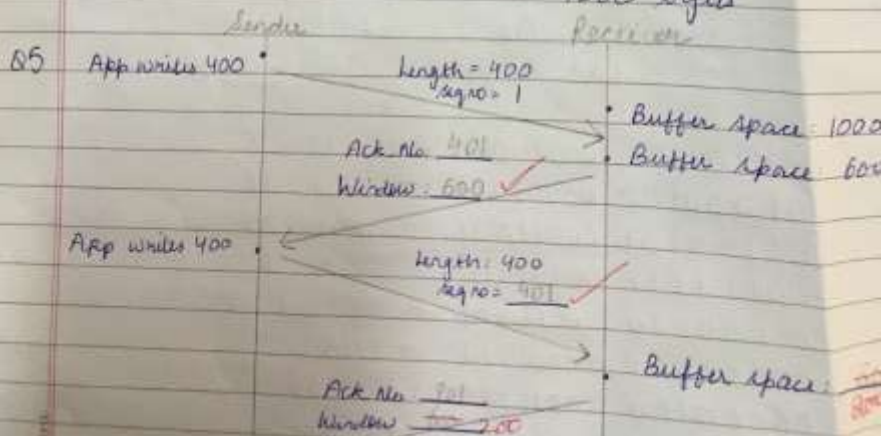 Sender
Q5 App writes 400 Length = 400
seq no = 1
Buffer space: 1000
Ack No. 401 Buffer space 600
Window: 600
App writes 400 Length: 400
seq no = 401
Buffer space:
200
Ack No. 801
Window 200